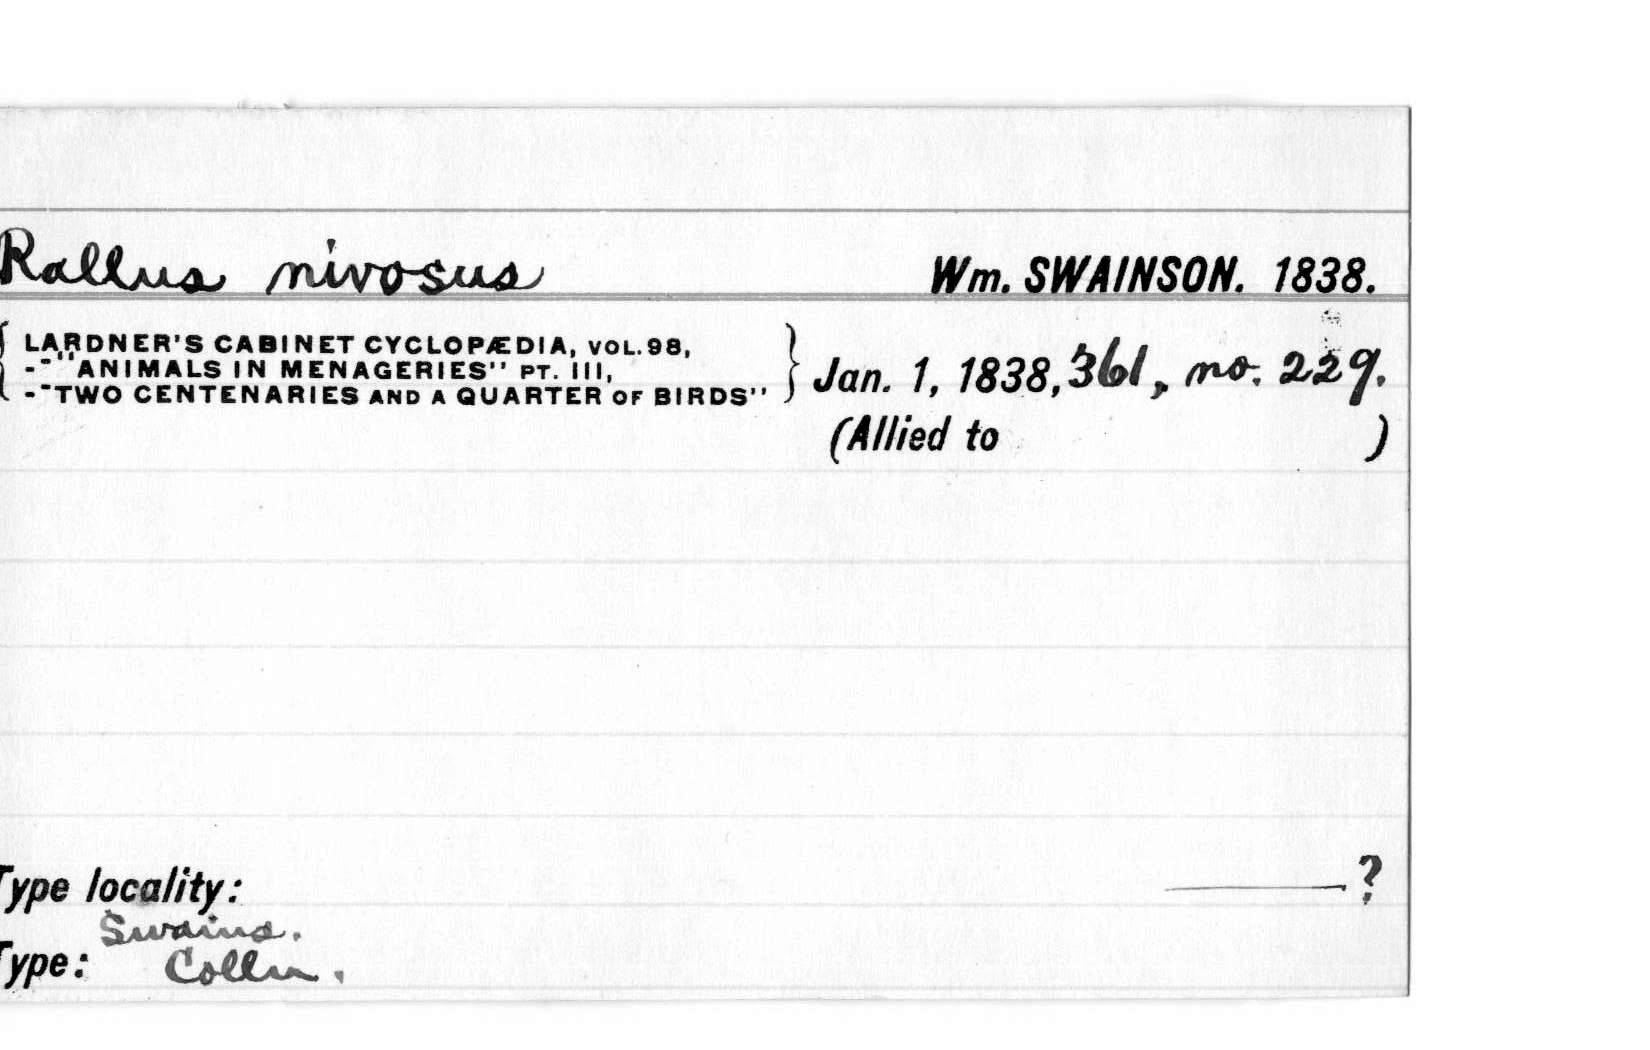 Rallus nivosus Wm. SWAINSON. 1838.
{ LARDNER'S CABINET CYCLOPÆDIA, VOL.98,
-"ANIMALS IN MENAGERIES" PT. III,
-"TWO CENTENARIES AND A QUARTER OF BIRDS" } Jan. 1, 1838, 361, no. 229.
(Allied to )
Type locality: ?
Swains.
Type: Colln.